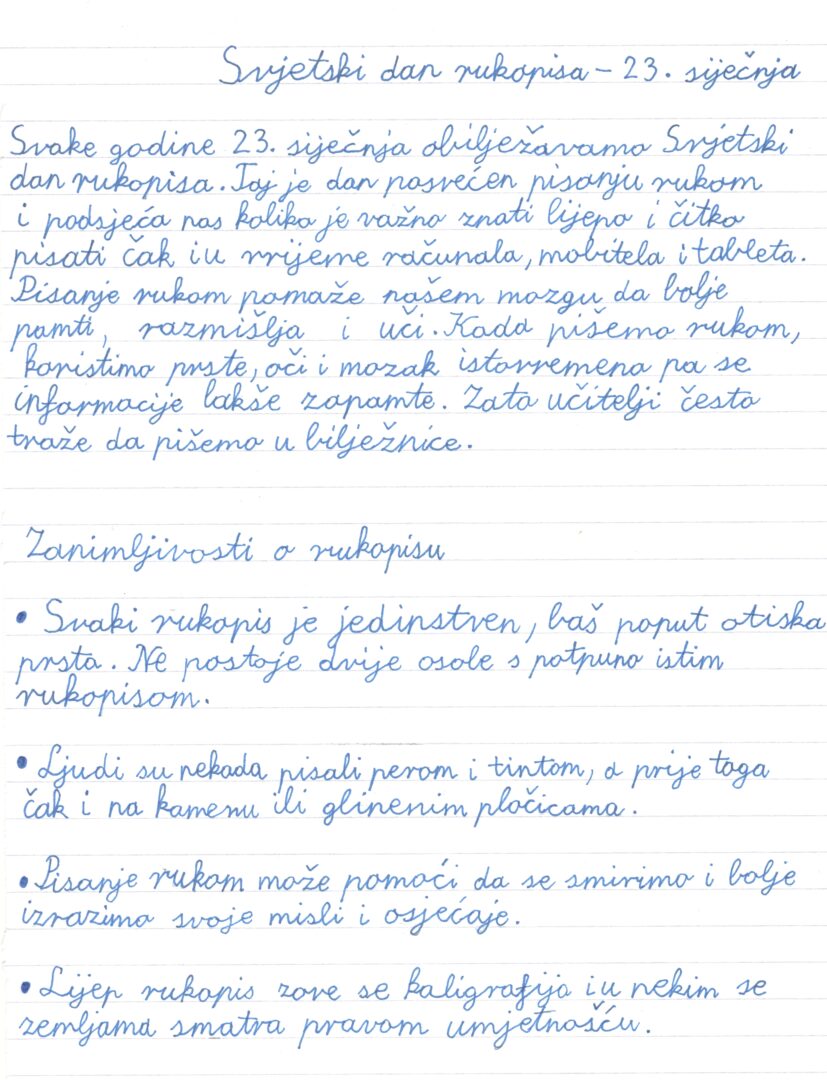 Svjetski dan rukopisa – 23. siječnja
Svake godine 23. siječnja obilježavamo Svjetski
dan rukopisa. Taj je dan posvećen pisanju rukom
i podsjeća nas koliko je važno znati lijepo i čitko
pisati čak i u vrijeme računala, mobitela i tableta.
Pisanje rukom pomaže našem mozgu da bolje
pamti, razmišlja i uči. Kada pišemo rukom,
koristimo prste, oči i mozak istovremeno pa se
informacije lakše zapamte. Zato učitelji često
traže da pišemo u bilježnice.
Zanimljivosti o rukopisu
• Svaki rukopis je jedinstven, baš poput otiska
prsta. Ne postoje dvije osobe s potpuno istim
rukopisom.
• Ljudi su nekada pisali perom i tintom, a prije toga
čak i na kamenu ili glinenim pločicama.
• Pisanje rukom može pomoći da se smirimo i bolje
izrazimo svoje misli i osjećaje.
• Lijep rukopis zove se kaligrafija i u nekim se
zemljama smatra pravom umjetnošću.